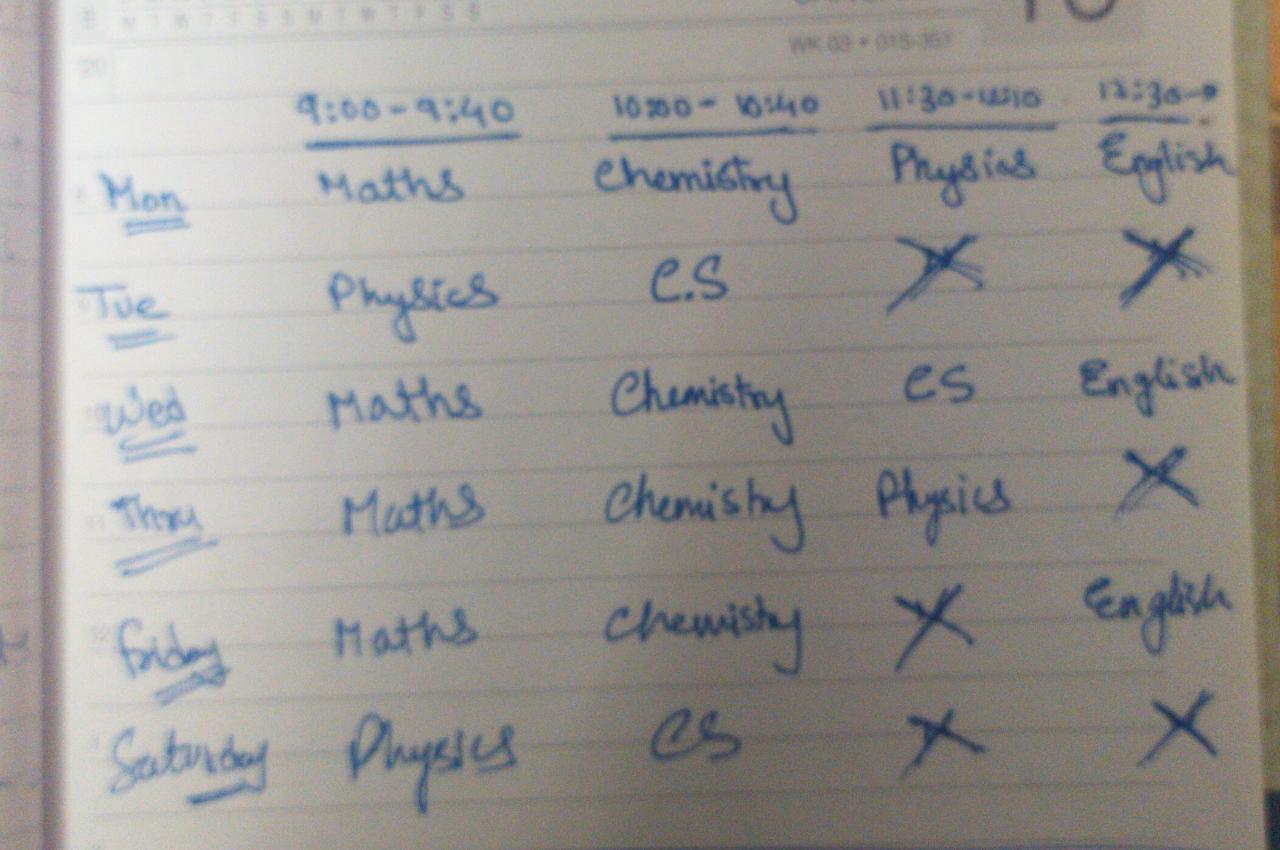 M T W T F S S M T W T F S S
WK 03 • 015-351
20
9:00 - 9:40 10:00 - 10:40 11:30 - 12:10 12:30→
Mon Maths Chemistry Physics English
Tue Physics C.S X X
Wed Maths Chemistry CS English
Thru Maths Chemistry Physics X
Friday Maths Chemistry X English
Saturday Physics CS X X